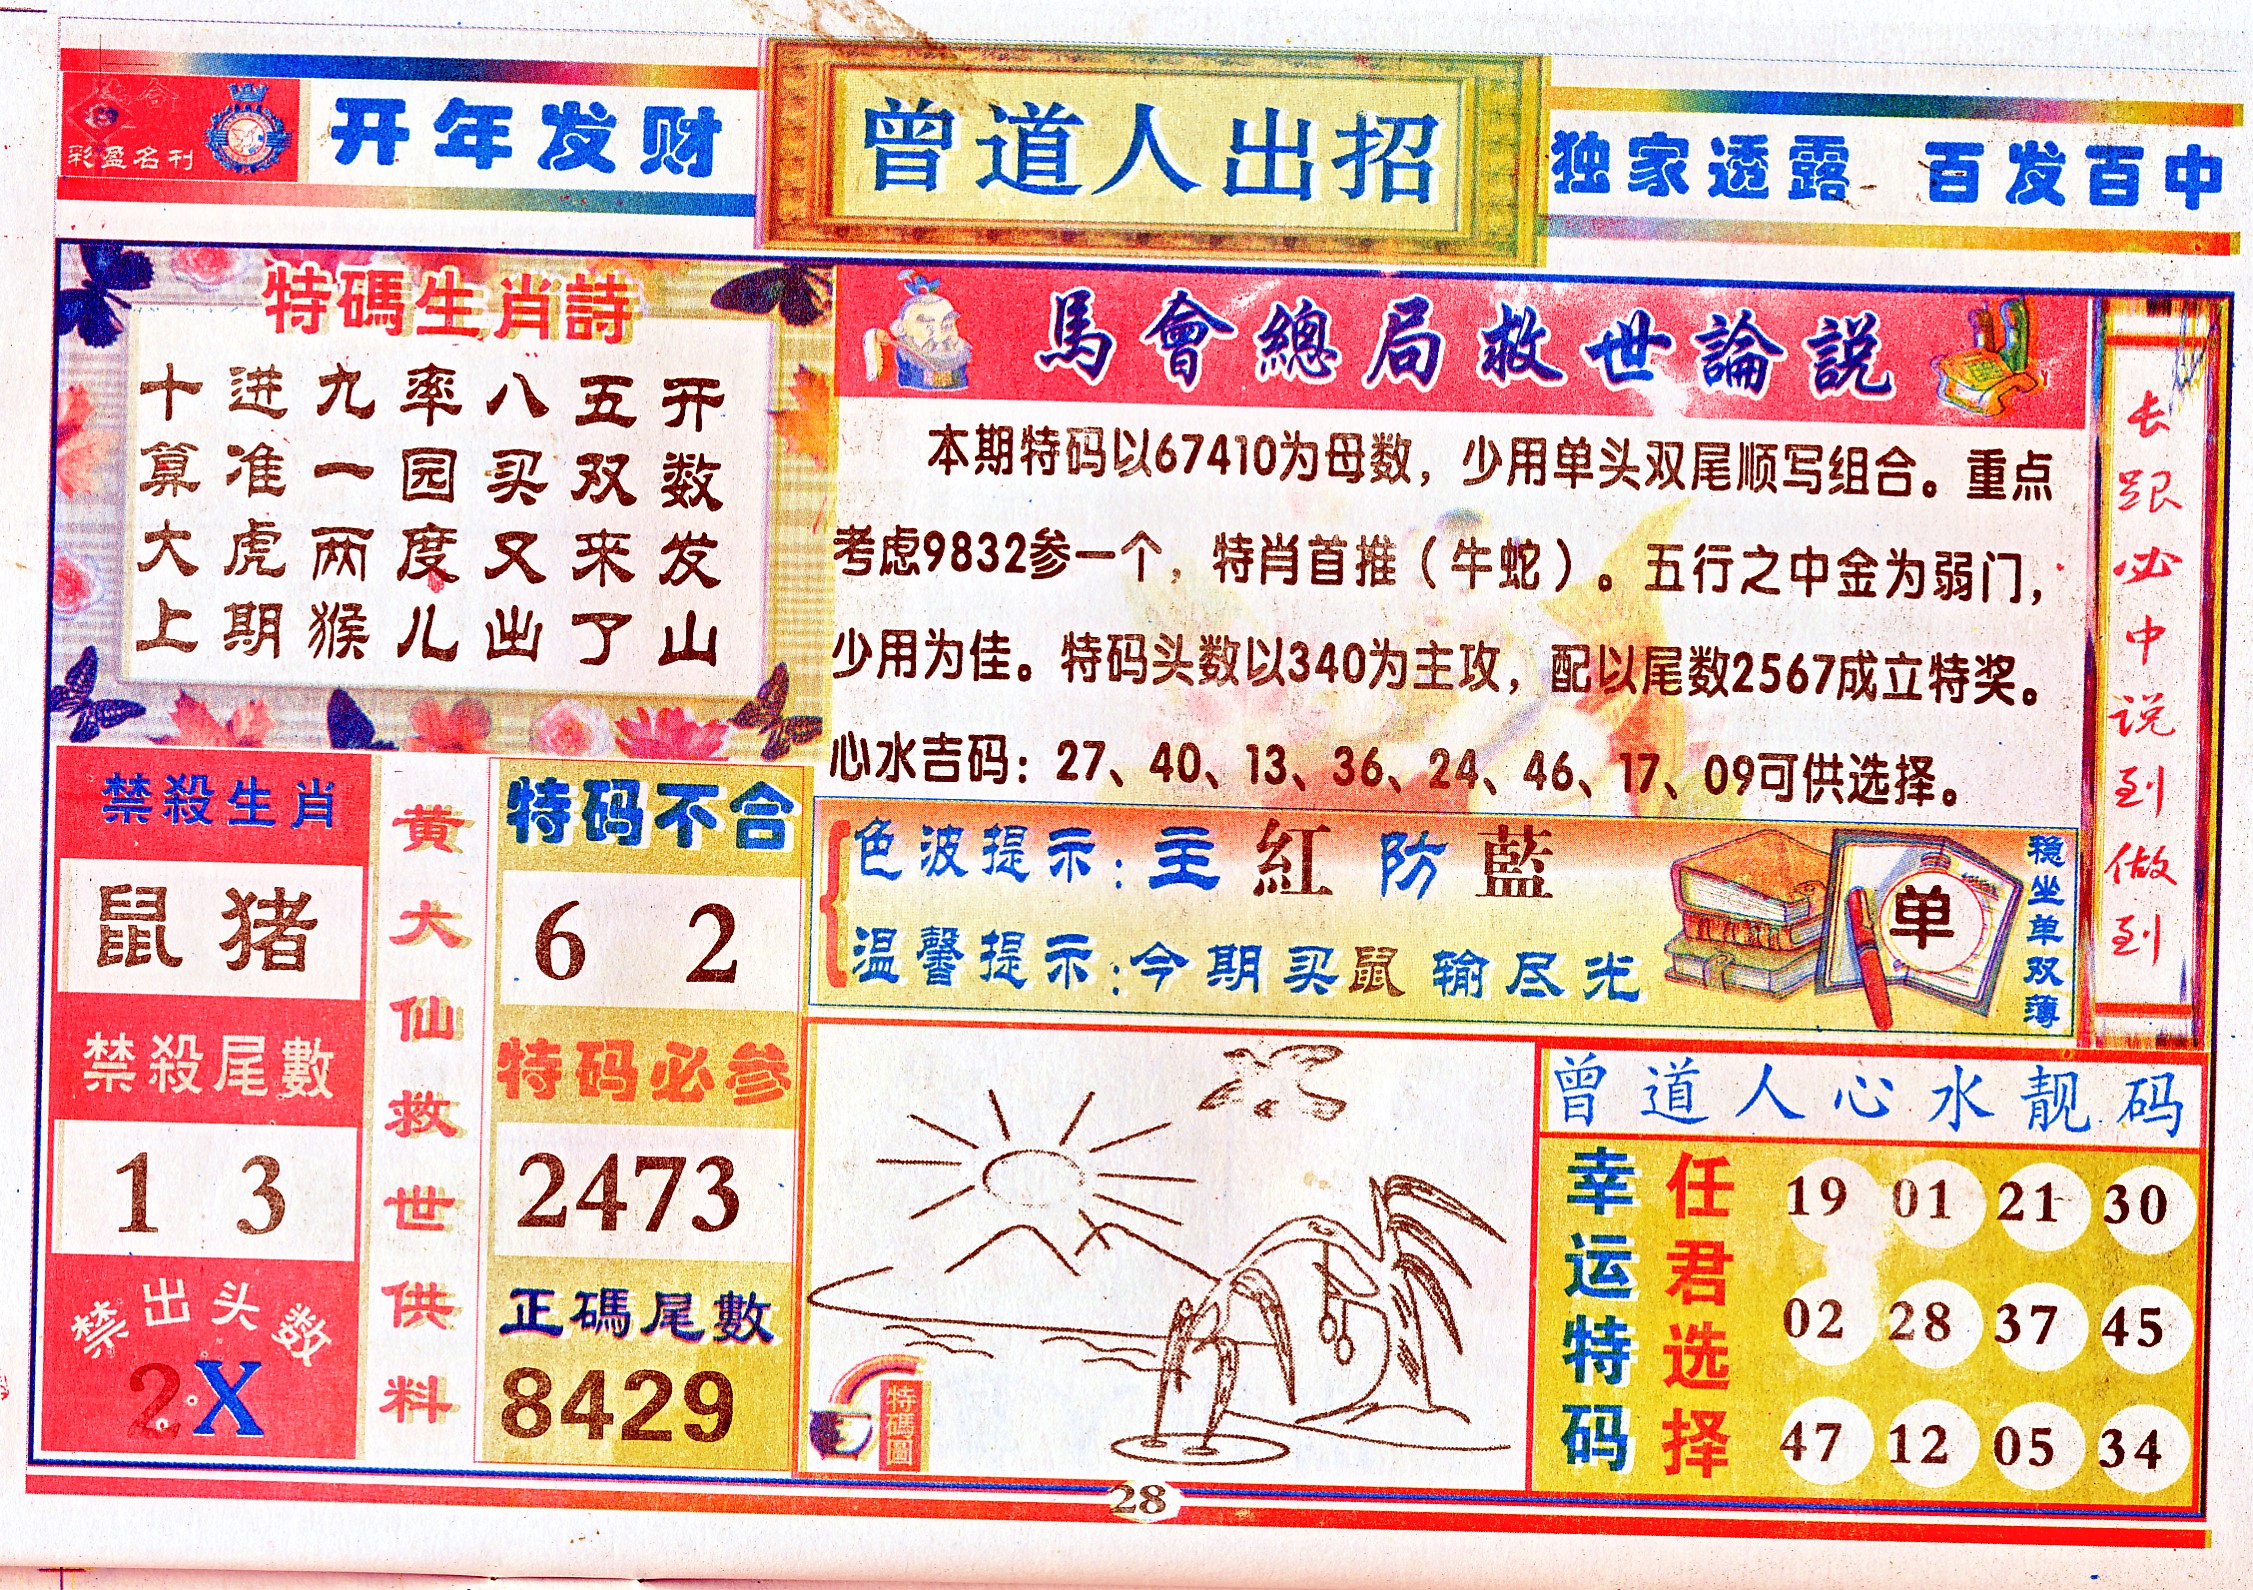 彩盈名刊
开年发财
曾道人出招
独家透露 百发百中
特碼生肖詩
十进九率八五开
算准一园买双数
大虎两度又来发
上期猴儿出了山
馬會總局救世論説
本期特码以67410为母数，少用单头双尾顺写组合。重点
考虑9832参一个，特肖首推（牛蛇）。五行之中金为弱门，
少用为佳。特码头数以340为主攻，配以尾数2567成立特奖。
心水吉码：27、40、13、36、24、46、17、09可供选择。
长跟必中说到做到
禁殺生肖
鼠猪
禁殺尾數
1 3
禁出头数
2X
黄大仙救世供料
特码不合
6 2
特码必参
2473
正碼尾數
8429
色波提示：主紅防藍
温馨提示：今期买鼠输尽光
单
稳坐单双薄
特碼圖
曾道人心水靓码
幸运特码
任君选择
19 01 21 30
02 28 37 45
47 12 05 34
28